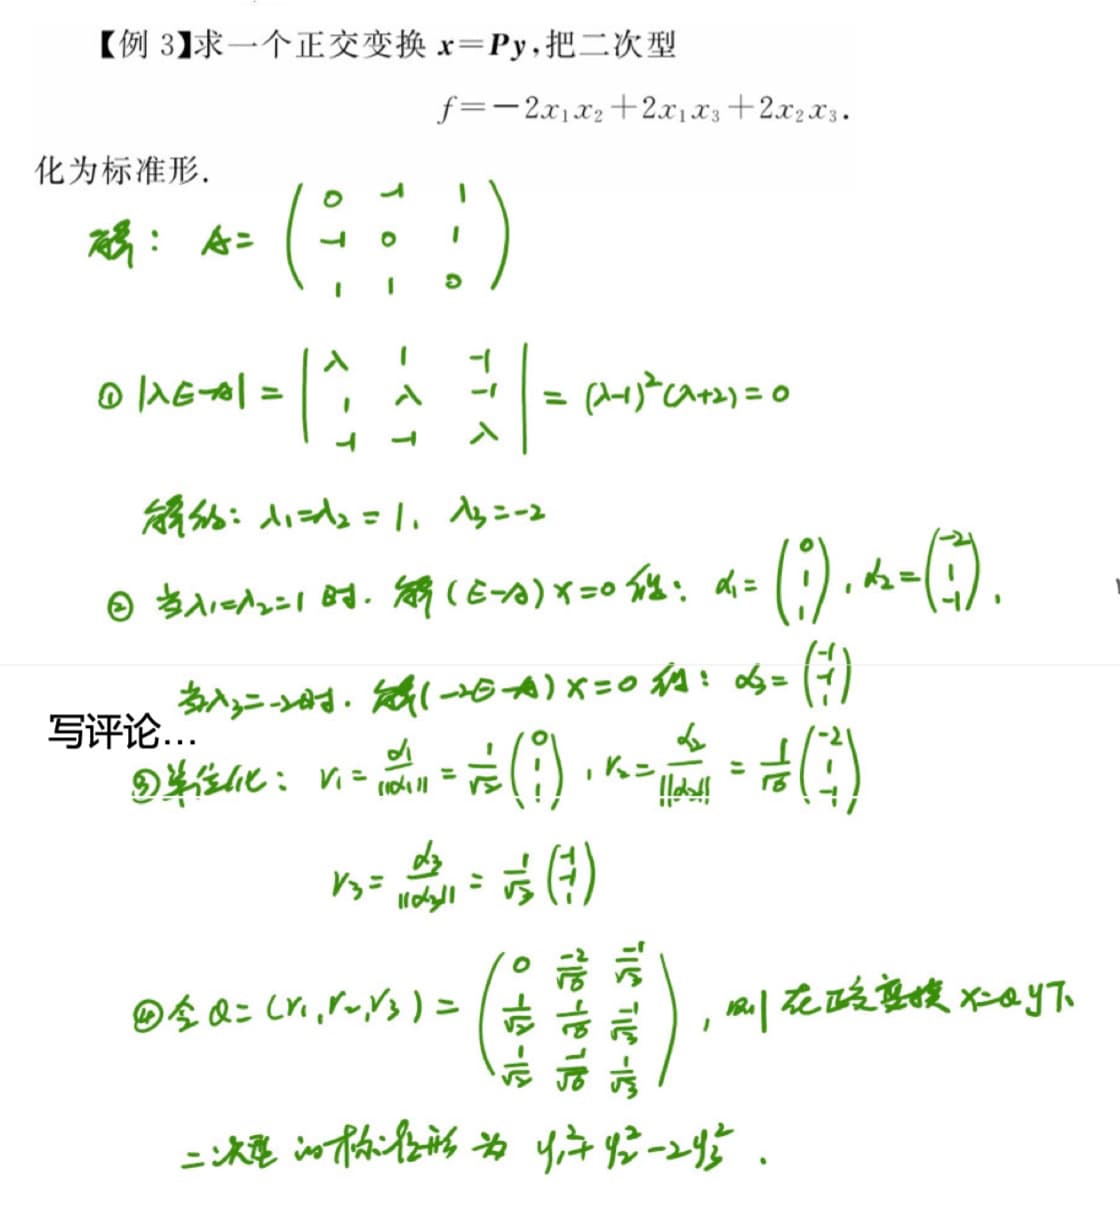 【例 3】求一个正交变换 x=Py,把二次型
f=-2x₁x₂+2x₁x₃+2x₂x₃.
化为标准形.
解: A= ( 0 -1 1
-1 0 1
1 1 0 )
① |λE-A| = | λ 1 -1
1 λ -1
-1 -1 λ | = (λ-1)²(λ+2)=0
解的: λ₁=λ₂=1, λ₃=-2
② 当λ₁=λ₂=1时. 解(E-A)x=0 得: α₁= (0 1 1), α₂=(-2 1 -1).
当λ₃=-2时. 解(-2E-A)x=0 得: α₃= (-1 -1 1)
写评论...
③单位化: r₁= α₁/||α₁|| = 1/√2 (0 1 1), r₂= α₂/||α₂|| = 1/√6 (-2 1 -1)
r₃= α₃/||α₃|| = 1/√3 (-1 -1 1)
④令Q=(r₁,r₂,r₃)= ( 0 -2/√6 -1/√3
1/√2 1/√6 -1/√3
1/√2 -1/√6 1/√3 ), 则在正交变换x=Qy下,
二次型的标准形为 y₁²+y₂²-2y₃².